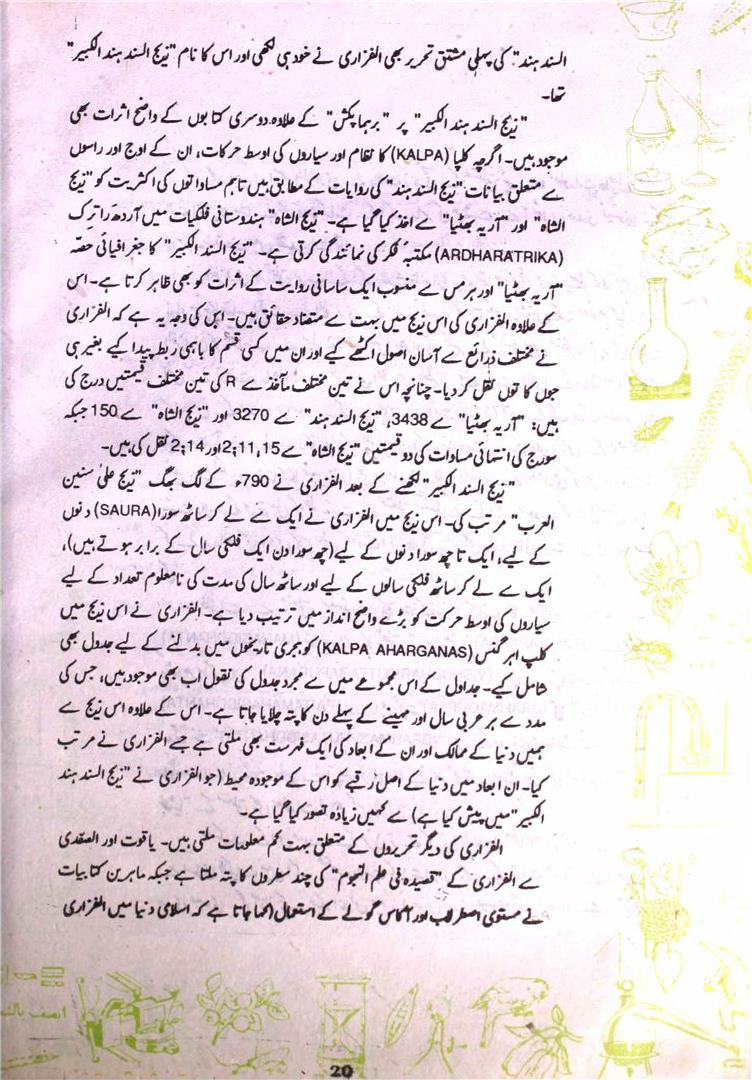 السند ہند". کی پہلی مشتق تحریر بھی الفزاری نے خود ہی لکھی اور اس کا نام "زیج السند ہند الکبیر"
تھا۔
"زیج السند ہند الکبیر" پر "برہما پکش" کے علاوہ دوسری کتابوں کے واضح اثرات بھی
موجود ہیں۔ اگرچہ کلپا (KALPA) کا نظام اور سیاروں کی اوسط حرکات، ان کے اوج اور راسوں
سے متعلق بیانات "زیج السند ہند" کی روایات کے مطابق ہیں تاہم مساواتوں کی اکثریت کو "زیج
الشاہ" اور "آریہ بھٹیا" سے اخذ کیا گیا ہے۔ "زیج الشاہ" ہندوستانی فلکیات میں آردھ راترک
(ARDHARATRIKA) مکتبۂ فکر کی نمائندگی کرتی ہے۔ "زیج السند الکبیر" کا جغرافیائی حصّہ
"آریہ بھٹیا" اور ہرمس سے منسوب ایک ساسانی روایت کے اثرات کو بھی ظاہر کرتا ہے۔ اس
کے علاوہ الفزاری کی اس زیج میں بہت سے متضاد حقائق ہیں۔ اس کی وجہ یہ ہے کہ الفزاری
نے مختلف ذرائع سے آسان اصول اکٹھے کیے اور ان میں کسی قسم کا باہمی ربط پیدا کیے بغیر ہی
جوں کا توں نقل کر دیا۔ چنانچہ اس نے تین مختلف مآخذ سے R کی تین مختلف قیمتیں درج کی
ہیں: "آریہ بھٹیا" سے 3438، "زیج السند ہند" سے 3270 اور "زیج الشاہ" سے 150 جبکہ
سورج کی انتہائی مساوات کی دو قیمتیں "زیج الشاہ" سے 2;11,15 اور 2;14 نقل کی ہیں۔
"زیج السند الکبیر" لکھنے کے بعد الفزاری نے 790ء کے لگ بھگ "زیج علیٰ سنین
العرب" مرتب کی۔ اس زیج میں الفزاری نے ایک سے لے کر ساٹھ سورا (SAURA) دنوں
کے لیے، ایک تا چھ سورا دنوں کے لیے (چھ سورا دن ایک فلکی سال کے برابر ہوتے ہیں)،
ایک سے لے کر ساٹھ فلکی سالوں کے لیے اور ساٹھ سال کی مدت کی نامعلوم تعداد کے لیے
سیاروں کی اوسط حرکت کو بڑے واضح انداز میں ترتیب دیا ہے۔ الفزاری نے اس زیج میں
کلپ اہرگنس (KALPA AHARGANAS) کو ہجری تاریخوں میں بدلنے کے لیے جدول بھی
شامل کیے۔ جداول کے اس مجموعے میں سے مجرد جدول کی نقول اب بھی موجود ہیں، جس کی
مدد سے ہر عربی سال اور مہینے کے پہلے دن کا پتہ چلایا جاتا ہے۔ اس کے علاوہ اس زیج سے
ہمیں دنیا کے ممالک اور ان کے ابعاد کی ایک فہرست بھی ملتی ہے جسے الفزاری نے مرتب
کیا۔ ان ابعاد میں دنیا کے اصل رقبے کو اس کے موجودہ محیط (جو الفزاری نے "زیج السند ہند
الکبیر" میں پیش کیا ہے) سے کہیں زیادہ تصور کیا گیا ہے۔
الفزاری کی دیگر تحریروں کے متعلق بہت کم معلومات ملتی ہیں۔ یاقوت اور الصفدی
سے الفزاری کے "قصیدہ فی علم النجوم" کی چند سطروں کا پتہ ملتا ہے جبکہ ماہرین کتابیات
نے مستوی اصطرلاب اور آکاس گولے کے استعمال (کہا جاتا ہے کہ اسلامی دنیا میں الفزاری
20